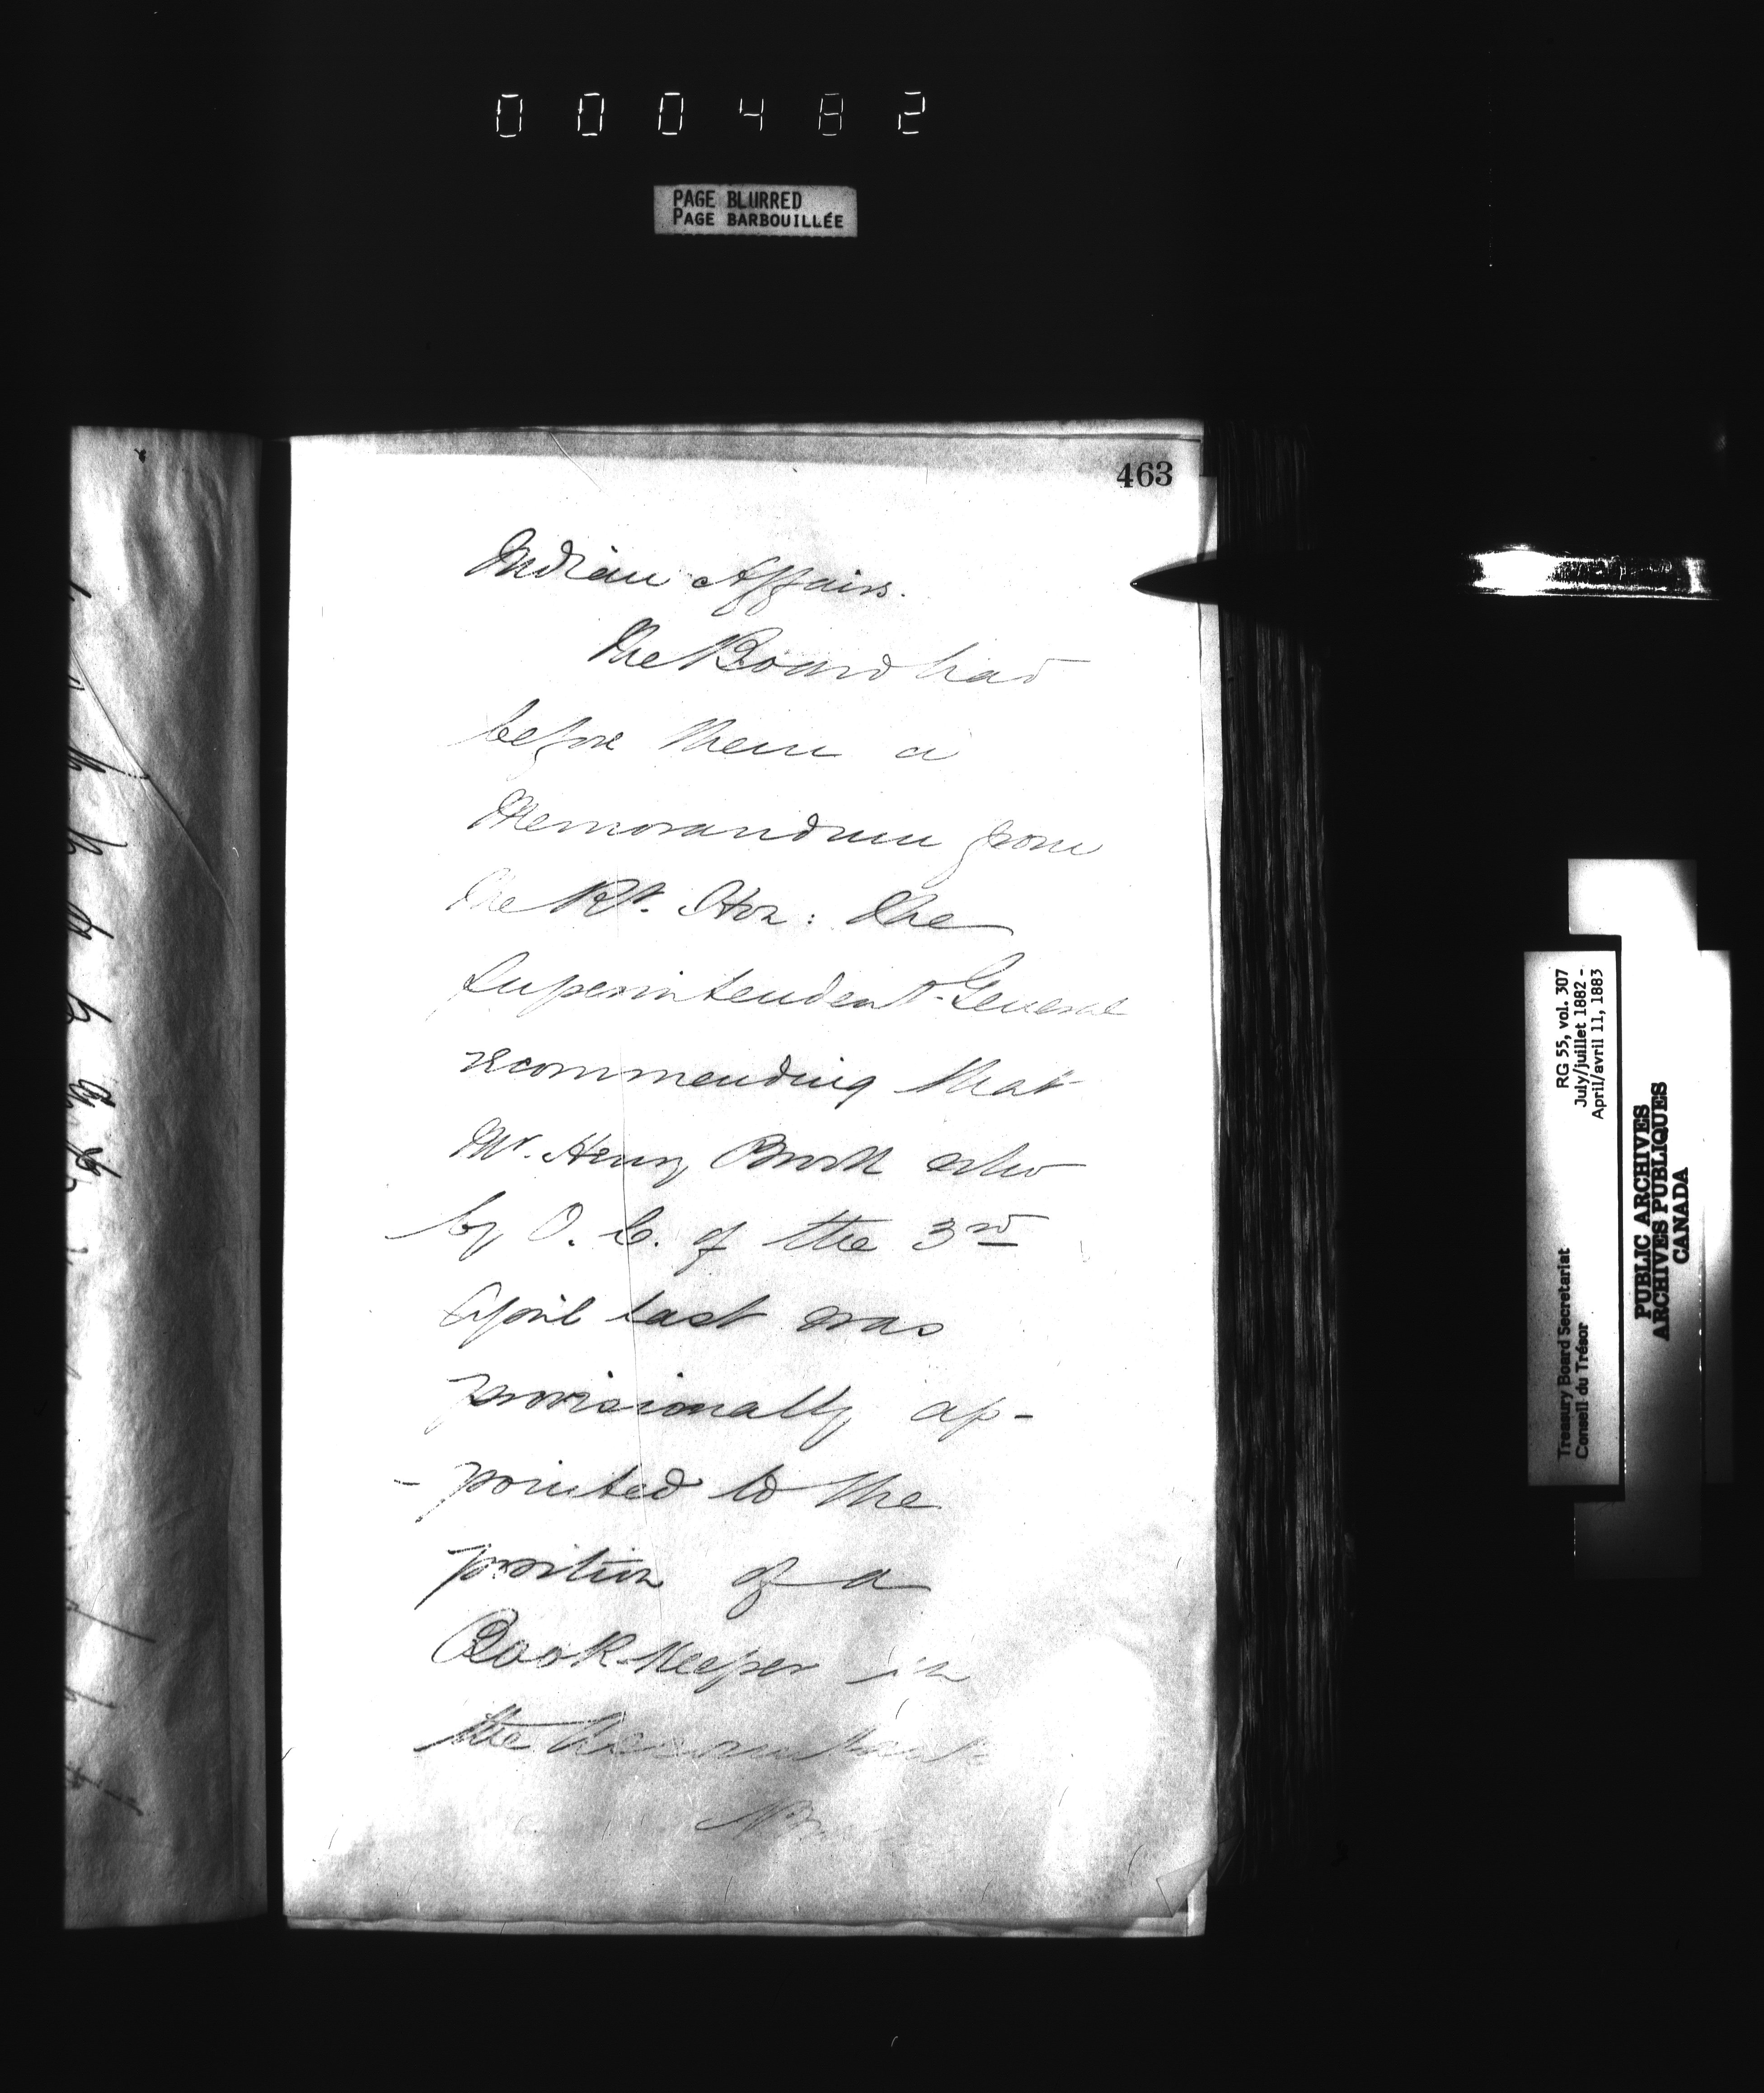 000482
PAGE BLURRED
PAGE BARBOUILLÉE
463
Indian Affairs.
The Board had
before them a
Memorandum from
the Rt. Hon: the
Superintendent-General
recommending that
Mr. Henry who
by O. C. of the 3rd
April last was
provisionally ap-
-pointed to the
position of a
Book-Keeper in
the
RG 55, vol. 307
July/juillet 1882 -
April/avril 11, 1883
Treasury Board Secretariat
Conseil du Trésor
PUBLIC ARCHIVES
ARCHIVES PUBLIQUES
CANADA